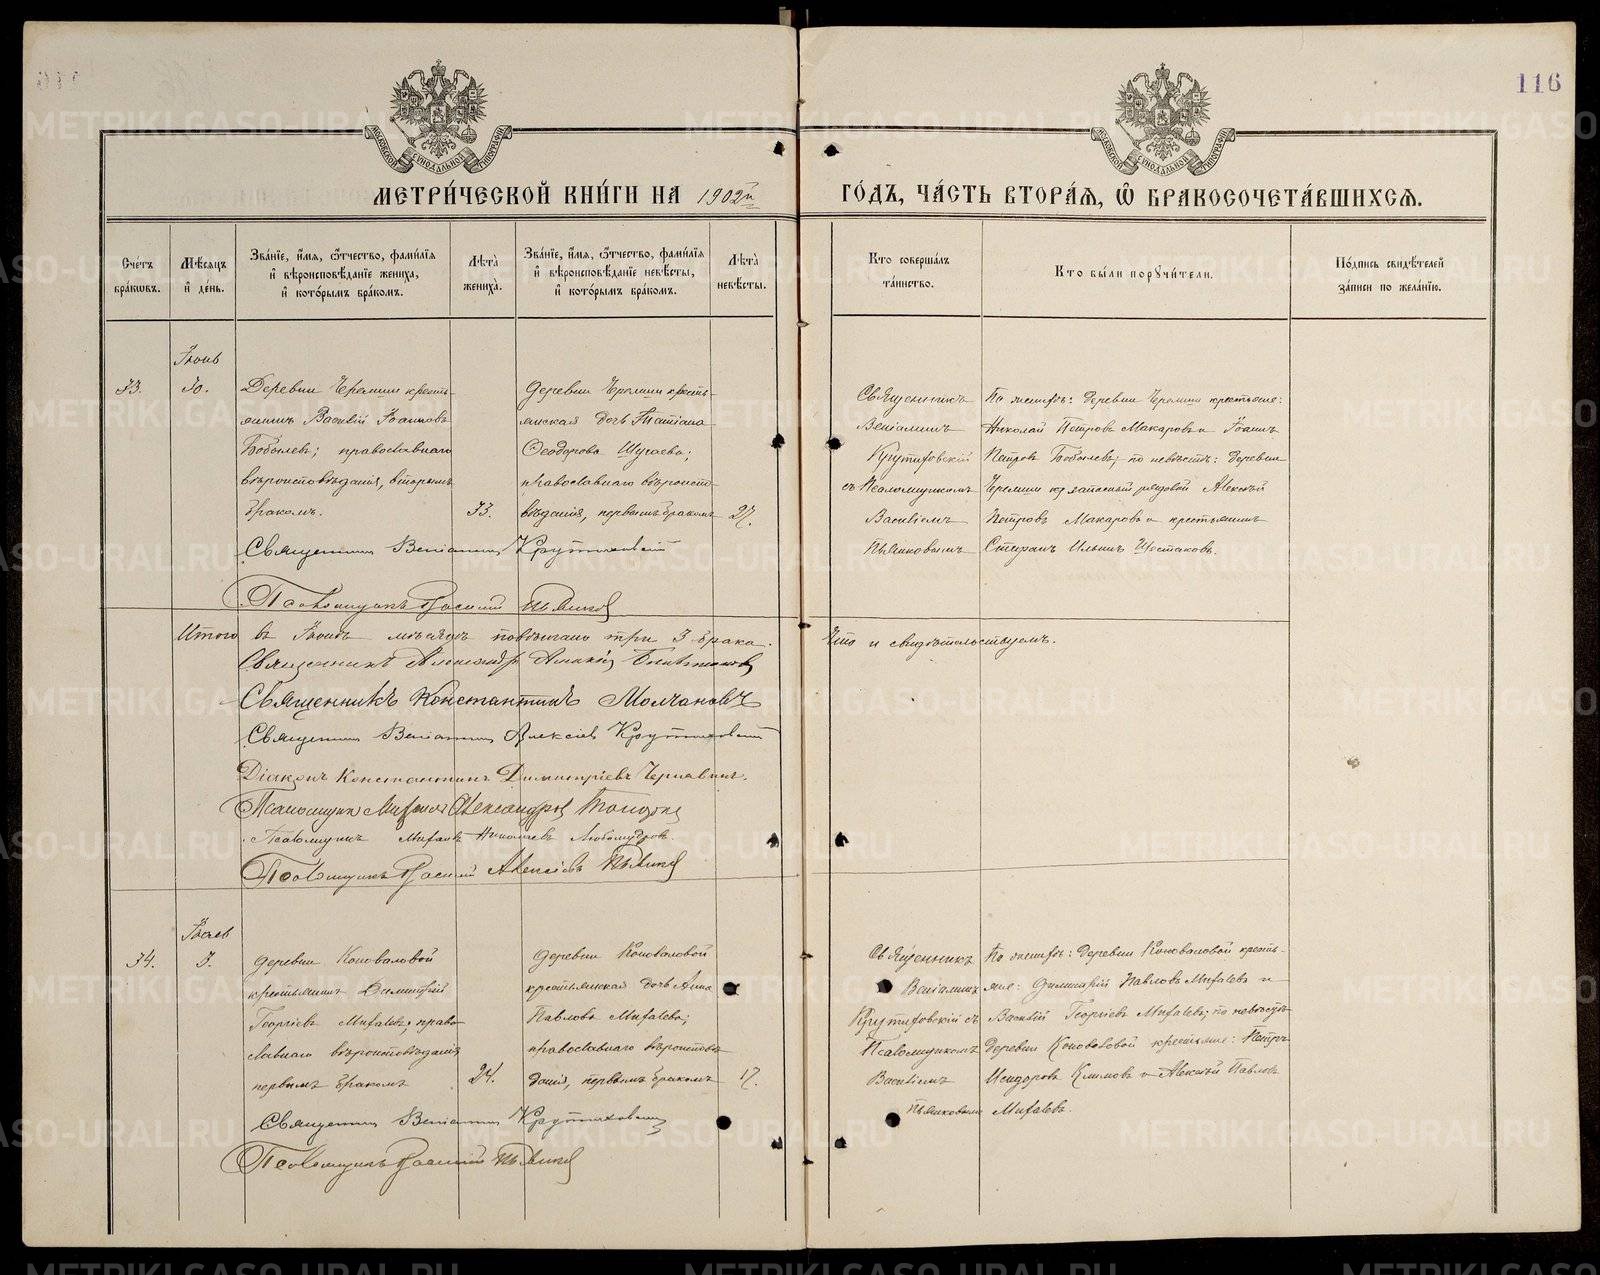 116
МЕТРИ́ЧЕСКОЙ КНИ́ГИ НА 1902й ГО́ДЪ, ЧА́СТЬ ВТОРА́Я, Ѿ БРАКОСОЧЕТА́ВШИХСЯ.
Сче́тъ бра́кѡвъ.
Мѣ́сяцъ и҆ де́нь.
Зва́нїе, и҆́мя, ѻ҆́тчество, фами́лїя
и҆ вѣроисповѣ́данїе жениха̀,
и҆ кото́рымъ бра́комъ.
Лѣ́та жениха̀.
Зва́нїе, и҆́мя, ѻ҆́тчество, фами́лїя
и҆ вѣроисповѣ́данїе невѣ́сты,
и҆ кото́рымъ бра́комъ.
Лѣ́та невѣ́сты.
Кто соверша́лъ та́инство.
Кто бы́ли порꙋчи́тели.
По́дпись свидѣ́телей за́писи по жела́нїю.
Іюнь
33.
30.
Деревни Черемши кресть-
янинъ Василій Іоанновъ
Бобылевъ; православнаго
вѣроисповѣданія, вторымъ
бракомъ.
33.
Деревни Черемши кресть-
янская дочь Татіана
Ѳеодорова Шугаева;
православнаго вѣроиспо-
вѣданія, первымъ бракомъ
27.
Священникъ
Веніаминъ
Крутиховскій
съ Псаломщикомъ
Василіемъ
Пьянковымъ
По женихѣ: деревни Черемши крестьяне:
Николай Петровъ Макаровъ и Іоаннъ
Петровъ Бобылевъ; по невѣстѣ: деревни
Черемши запасный рядовой Алексѣй
Петровъ Макаровъ и крестьянинъ
Ильинъ Шестаковъ.
Священникъ Веніаминъ Крутиховскій
Псаломщикъ Василій Пьянковъ
Итого въ Іюнѣ мѣсяцѣ повѣнчано три 3 брака.
Что и свидѣтельствуемъ.
Священникъ
Священникъ Константинъ Молчановъ
Священникъ Веніаминъ Алексіевъ Крутиховскій
Діаконъ Константинъ Димитріевъ Чернавинъ.
Псаломщикъ Михаилъ Александровъ
Псаломщикъ Михаилъ Николаевъ Любомудровъ.
Псаломщикъ Василій Алексіевъ Пьянковъ
34.
Деревни Коноваловой
крестьянинъ Димитрій
Георгіевъ Михалевъ; право-
славнаго вѣроисповѣданія
первымъ бракомъ
24.
деревни Коноваловой
крестьянская дочь Анна
Павлова Михалева;
православнаго вѣроисповѣ-
данія, первымъ бракомъ
17.
Священникъ
Веніаминъ
Крутиховскій съ
Псаломщикомъ
Василіемъ
Пьянковымъ
По женихѣ: деревни Коноваловой кресть-
яне: Димитрій Павловъ Михалевъ и
Василій Георгіевъ Михалевъ; по невѣстѣ
деревни Коноваловой крестьяне: Петръ
Исидоровъ Климовъ и Алексѣй Павловъ
Михалевъ.
Священникъ Веніаминъ Крутиховскій
Псаломщикъ Василій Пьянковъ
METRIKI.GASO-URAL.RU